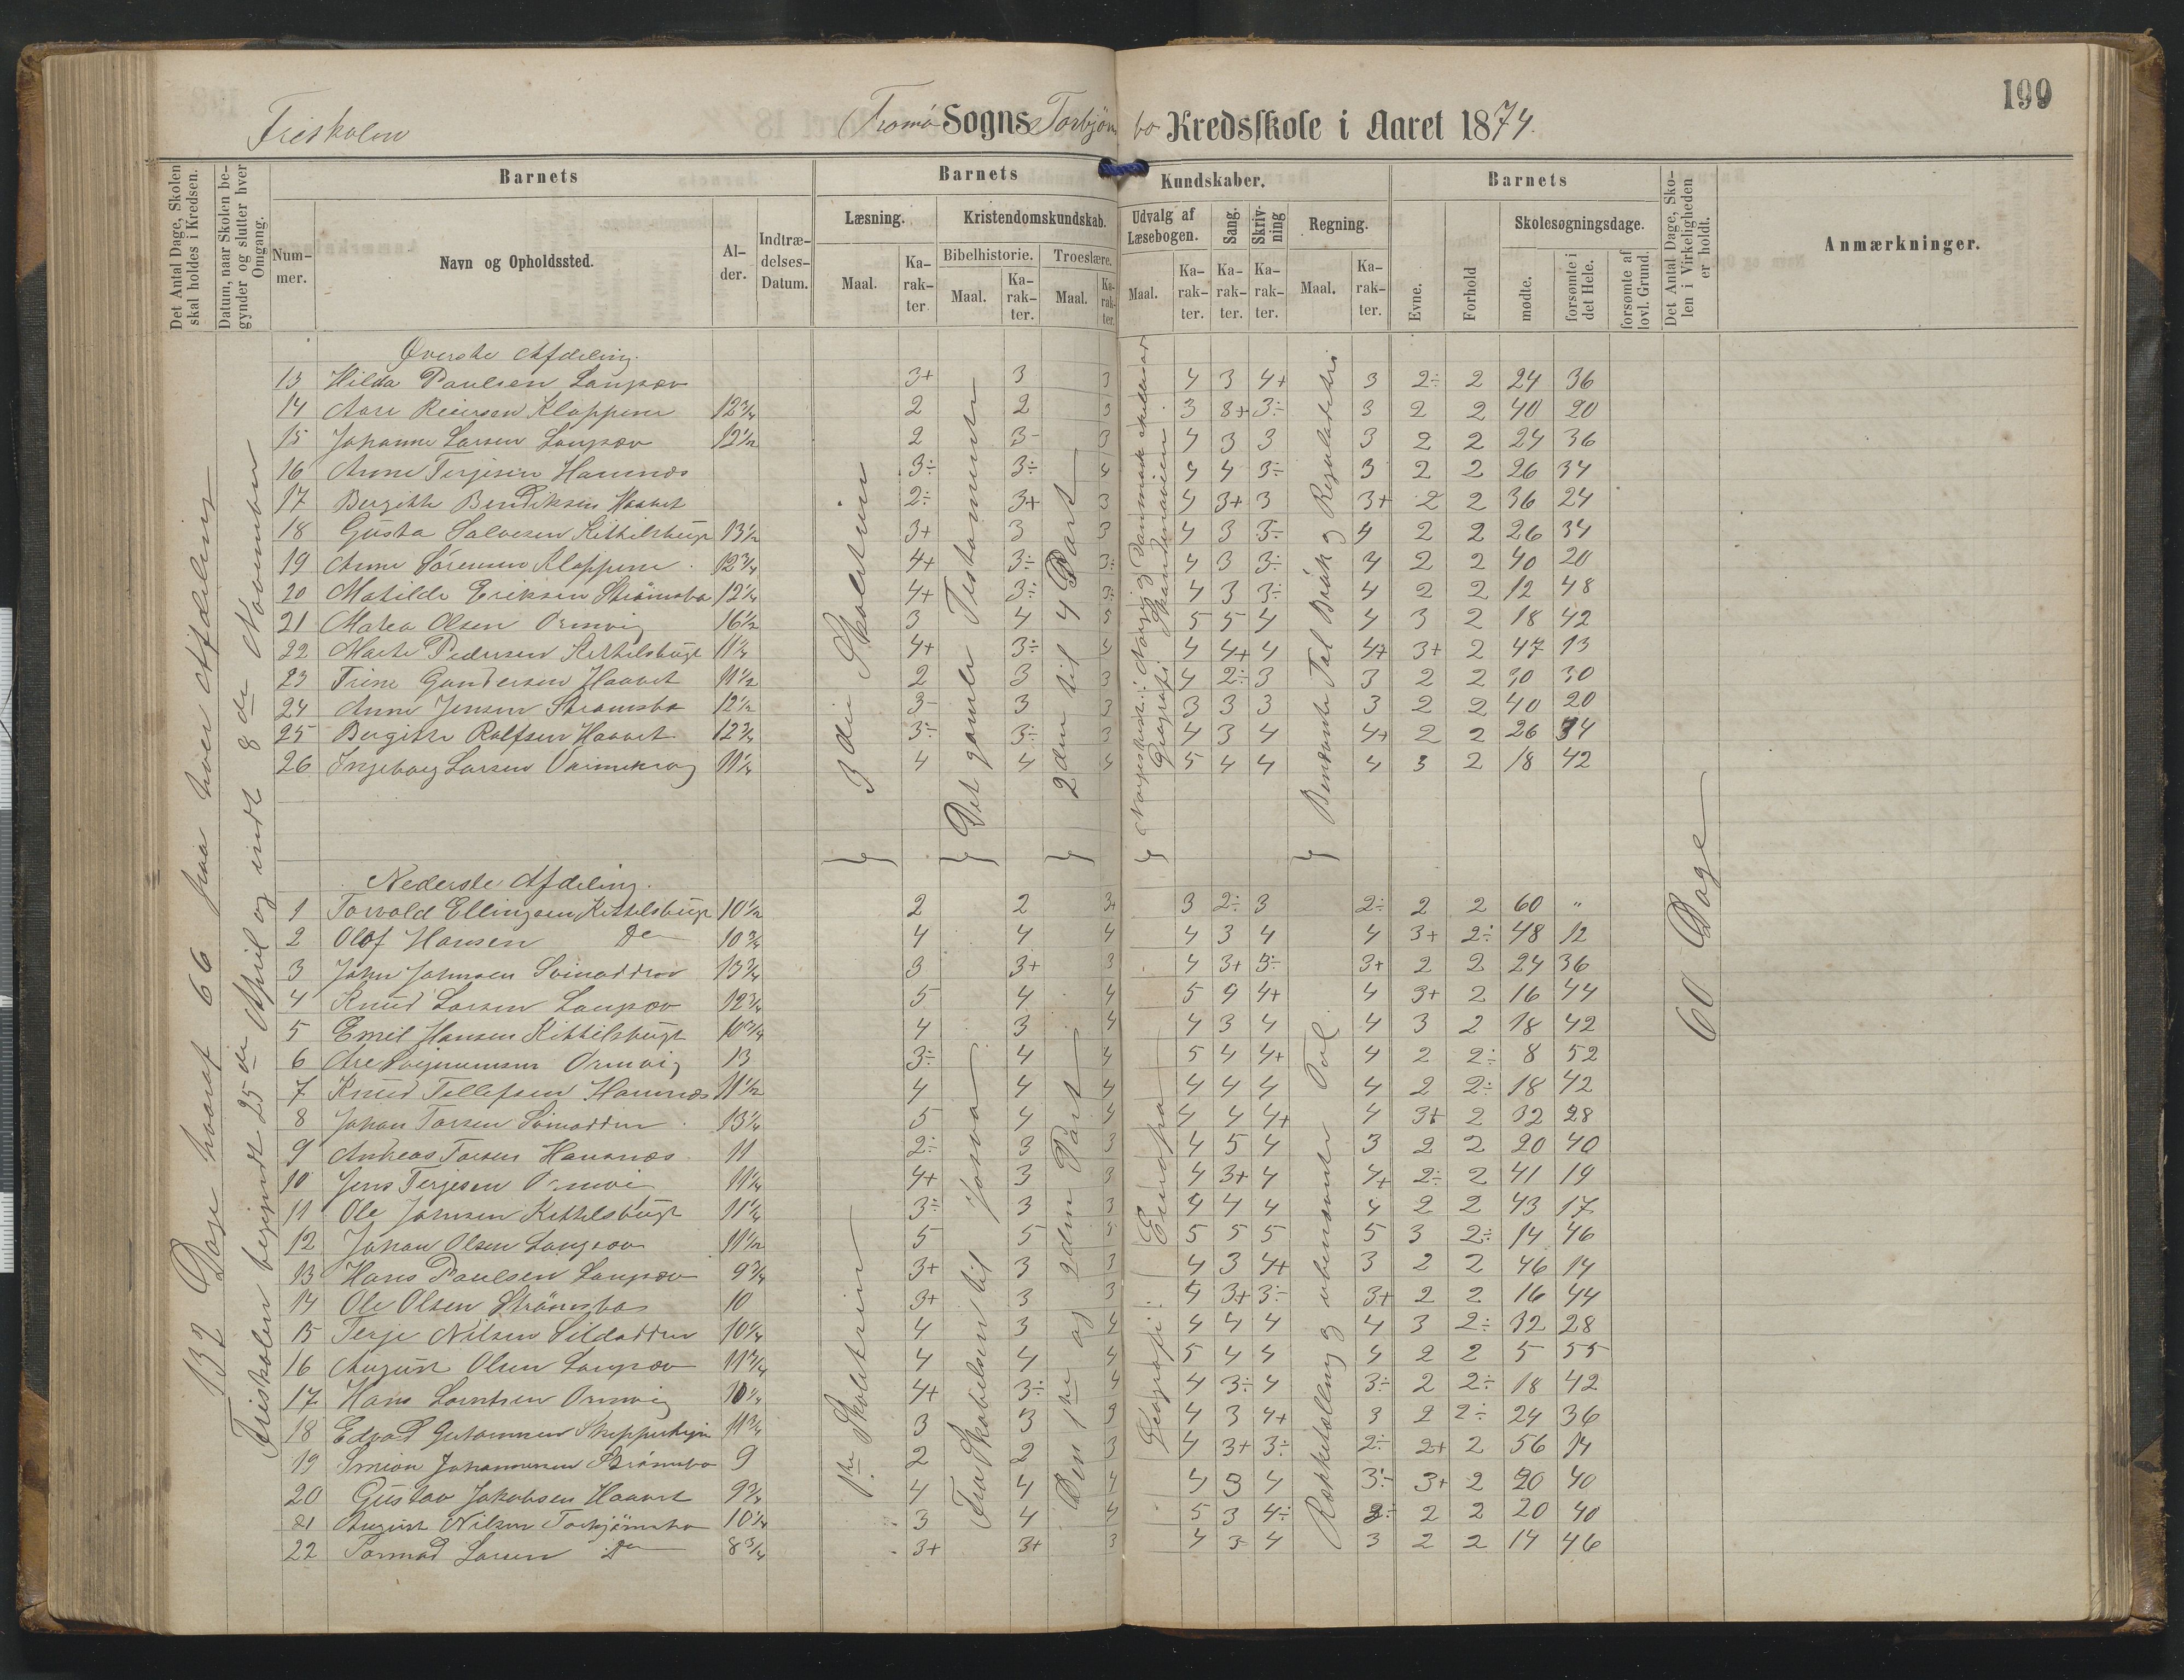 199
Friskolen Tromö Sogns Torbjörnsbo Kredsskole i Aaret 1874.
Det Antal Dage, Skolen skal holdes i Kredsen.
Datum, naar Skolen begynder og slutter hver Omgang.
Barnets
Barnets Kundskaber.
Barnets
Det Antal Dage, Skolen i Virkeligheden er holdt.
Anmærkninger.
Nummer.
Navn og Opholdssted.
Alder.
Indtrædelses-Datum.
Læsning.
Kristendomskundskab.
Udvalg af Læsebogen.
Sang.
Skrivning
Regning.
Evne.
Forhold
Skolesøgningsdage.
Bibelhistorie.
Troeslære.
Maal.
Karakter.
mødte.
forsømte i det Hele.
forsømte af lovl. Grund.
132 Dage hvoraf 66 paa hver Afdeling
Friskolen begyndt 25de April og endt 8de November
Øverste Afdeling.
13 Hilda Paulsen Langsæv 3+ 3 3 4 3 4+ 3 2÷ 2 24 36
14 Aase Reiersen Kloppene 12 3/4 2 2 3 3 3+ 3÷ 3 2 2 40 20
15 Johanne Larsen Langsæv 12 1/2 2 3- 3 4 3 3 3 2 2 24 36
16 Anne Terjesen Havnnæs 3÷ 3÷ 4 4 4 3÷ 3 2 2 26 34
17 Bergitte Bendiksen Haavet 2÷ 3+ 3 4 3+ 3 3+ 2 2 36 24
18 Gusta Salvesen Kittelsbugt 13 1/2 3+ 3 3 4 3 3÷ 4 2 2 26 34
19 Anne Sørensen Kloppene 12 3/4 4+ 3÷ 3÷ 4 3 3÷ 4 2 2 40 20
20 Matilde Eriksen Strömsbo 12 1/4 4+ 3÷ 3÷ 4 3 3÷ 4 2 2 12 48
21 Marea Olsen Ormvig 16 1/2 3 4 5 5 5 4 4 3 2 18 42
22 Marte Pedersen Kittelsbugt 11 1/4 4+ 3÷ 4 4 4+ 4 4+ 3+ 2 47 13
23 Trine Gundersen Haavet 11 1/2 2 3 3 4 2÷ 3 3 2 2 30 30
24 Anne Jensen Strömsbo 12 1/2 3- 3 3 3 3 3 3 2 2 40 20
25 Bergitte Rolfsen Haavet 12 3/4 3÷ 3÷ 3 4 3 4 4+ 2 2 26 34
26 Ingeborg Larsen 11 1/4 4 4 4 5 4 4 4 3 2 18 42
3die Skoletrin
Det gamle Testamente
2den til 4 Part
Norgeshist: Norge, Danmark
Geografi Skandinavien
Benævnte Tal Brök og Regulatetri
Nederste Afdeling.
1 Torvald Ellingsen Kittelsbugt 10 1/2 2 2 3+ 3 2÷ 3 2÷ 2 2 60 "
2 Olaf Hansen Do 10 3/4 4 4 4 4 3 4 4 3+ 2÷ 48 12
3 John Johnsen Svinodden 13 3/4 3 3+ 3 4 3+ 3÷ 3+ 2 2 24 36
4 Knud Larsen Langsæv 12 3/4 5 4 4 5 4 4+ 4 3+ 2 16 44
5 Emil Hansen Kittelsbugt 10 3/4 4 3 4 4 3 4 4 3 2 18 42
6 Are Ormvig 13 3÷ 4 4 5 4 4+ 4 2 2÷ 8 52
7 Knud Tellefsen Havnnæs 11 1/2 4 4 4 4 4 4 4 2 2÷ 18 42
8 Johan Torsen Svinodden 13 1/4 5 4 4 4 4 4+ 4 3+ 2 32 28
9 Andreas Torsen Havnnæs 11 2÷ 3 3 4 5 4 3 2 2 20 40
10 Jens Terjesen Ormvi 11 1/4 4+ 3 3 4 3+ 4 4+ 2÷ 2 41 19
11 Ole Johnsen Kittelsbugt 11 1/4 3÷ 3 3 4 4 4 4 2 2 43 17
12 Johan Olsen Langsæv 11 1/2 5 5 5 5 5 5 5 3 2÷ 14 46
13 Hans Paulsen Langsæv 9 3/4 3+ 3 3 4 3 4+ 3 2 2 46 14
14 Ole Olsen Strömsbo 10 3+ 3 3 4 3+ 3÷ 3+ 2 2 16 44
15 Terje Nilsen Sildodden 10 1/4 4 3 4 4 4 4 4 3 2÷ 32 28
16 August Olsen Langsæv 11 3/4 4 4 4 5 4 4 4 2 2 5 55
17 Hans Lorntsen Ormvig 10 1/4 4+ 3÷ 4 4 3÷ 4 3÷ 2 2÷ 18 42
18 Edvard 11 3/4 3 3 3 4 3 4+ 3 2 2÷ 24 36
19 Simon Johannesen Strömsbo 9 2 2 3 4 3+ 3÷ 2÷ 2+ 2 56 14
20 Gustav Jakobsen Haavet 9 3/4 4 4 4 4 3 4 3÷ 3+ 2 20 40
21 August Nilsen Torbjörnsbo 10 1/4 3 4 4 5 3 4÷ 3÷ 2 2 20 40
22 Larsen Do 8 3/4 3+ 3+ 3 4 3 4 3 2 2 14 46
1ste Skoletrin
Fra Skabelsen til Josva
Den 1ste og 2den Part
Geografi: Europa
Rækketælling og ubenævnte Tal
60 Dage